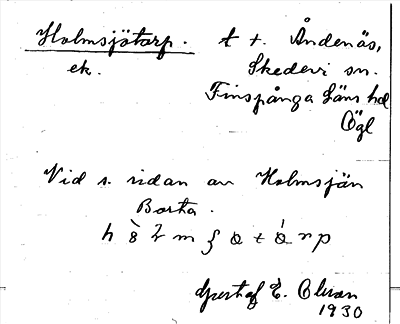 Holmsjötorp. t. t. Åndenäs,
ek. Skedevi sn.
Finspånga Läns hd
Ögl
Vid s. sidan av Holmsjön
Borta.
Gustaf E. Olsson
1930